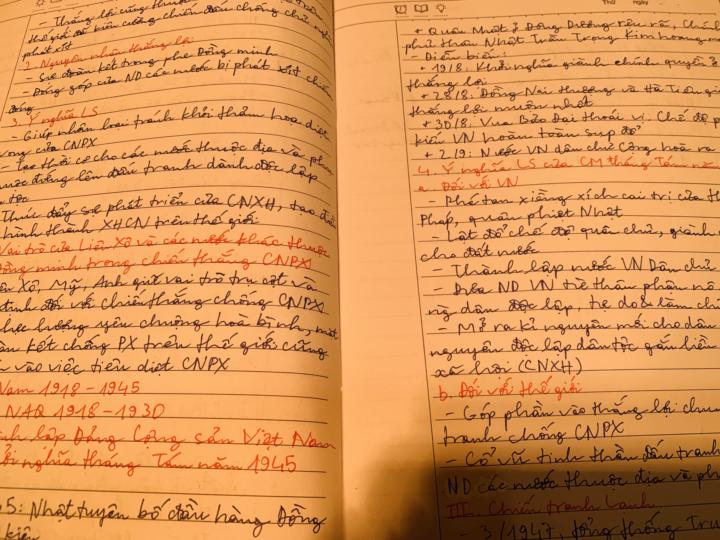 - Thắng lợi cũng thuộc
thế giới đã kiên cường chiến đấu chống chủ nghĩa
phát xít
2. Nguyên nhân thắng lợi
- Sự đoàn kết trong phe Đồng minh
- Đóng góp của ND các nước bị phát xít chiếm
đóng
3. Ý nghĩa LS
- Giúp nhân loại tránh khỏi thảm hoạ diệt
vong của CNPX
- Tạo thời cơ cho các nước thuộc địa và phụ
thuộc đứng lên đấu tranh giành độc lập
tộc
Thúc đẩy sự phát triển của CNXH, tạo điều
hình thành XHCN trên thế giới
Vai trò của Liên Xô và các nước khác thuộc
Đồng minh trong chiến thắng CNPX
Liên Xô, Mỹ, Anh giữ vai trò trụ cột và
định đối với chiến thắng chống CNPX
lực lượng yêu chuộng hoà bình, mặt
kết chống PX trên thế giới cũng
vào việc tiêu diệt CNPX
Nam 1918 - 1945
NAQ 1918 - 1930
lập Đảng Cộng sản Việt Nam
khởi nghĩa tháng Tám năm 1945
5: Nhật tuyên bố đầu hàng Đồng
kiện
Thứ ngày
+ Quân Nhật ở Đông Dương rệu rã, Chính
phủ thân Nhật Trần Trọng Kim hoang m
- Diễn biến:
+ 19/8: Khởi nghĩa giành chính quyền ở
thắng lợi
+ 28/8: Đồng Nai Thượng và Hà Tiên già
thắng lợi muộn nhất
+ 30/8: Vua Bảo Đại thoái vị. Chế độ p
kiến VN hoàn toàn sụp đổ
+ 2/9: Nước VN dân chủ Cộng hoà ra
4. Ý nghĩa LS của CM tháng Tám nă
a. Đối với VN
- Phá tan xiềng xích cai trị của th
Pháp, quân phiệt Nhật
- Lật đổ chế độ quân chủ, giành
cho đất nước
- Thành lập nước VN Dân chủ
- Đưa ND VN từ thân phận nô
ng dân độc lập, tự do & làm ch
- Mở ra kỉ nguyên mới cho dân
nguyên độc lập dân tộc gắn liền
xã hội (CNXH)
b. Đối với thế giới
- Góp phần vào thắng lợi chu
tranh chống CNPX
- Cổ vũ tinh thần đấu tranh
ND các nước thuộc địa và ph
III. Chiến tranh Lạnh
- 3/1947, tổng thống Tru